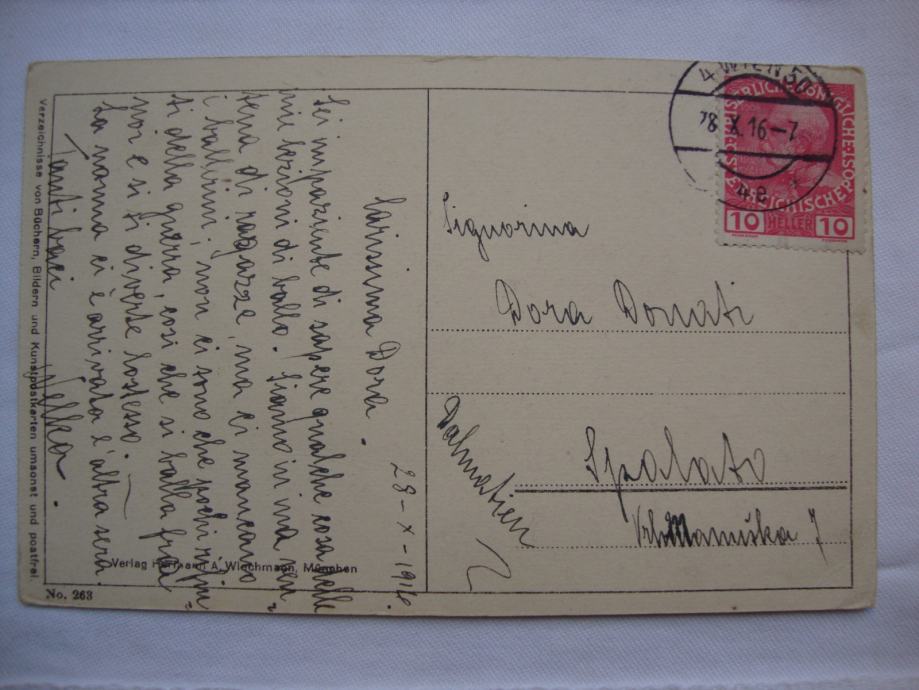 28-X-1916.
Carissima Dora.
Sei impaziente di sapere qualche cosa delle
mie lezioni di ballo. Siamo in una ven=
tena di ragazze, ma ci mancano
i ballerini, non ci sono che pochi
ti della guerra, così che si balla fra
noi e si ti diverte lostesso.
La nonna ci è arrivata l'altra sera.
Tanti baci
Signorina
Dora Donati
Spalato
Dalmatien
7
4 WIEN 50
28 X 16-7
48
10 HELLER 10
Verlag Hermann A. Wiechmann, München
No. 263
Verzeichnisse von Büchern, Bildern und Kunstpostkarten umsonst und postfrei.